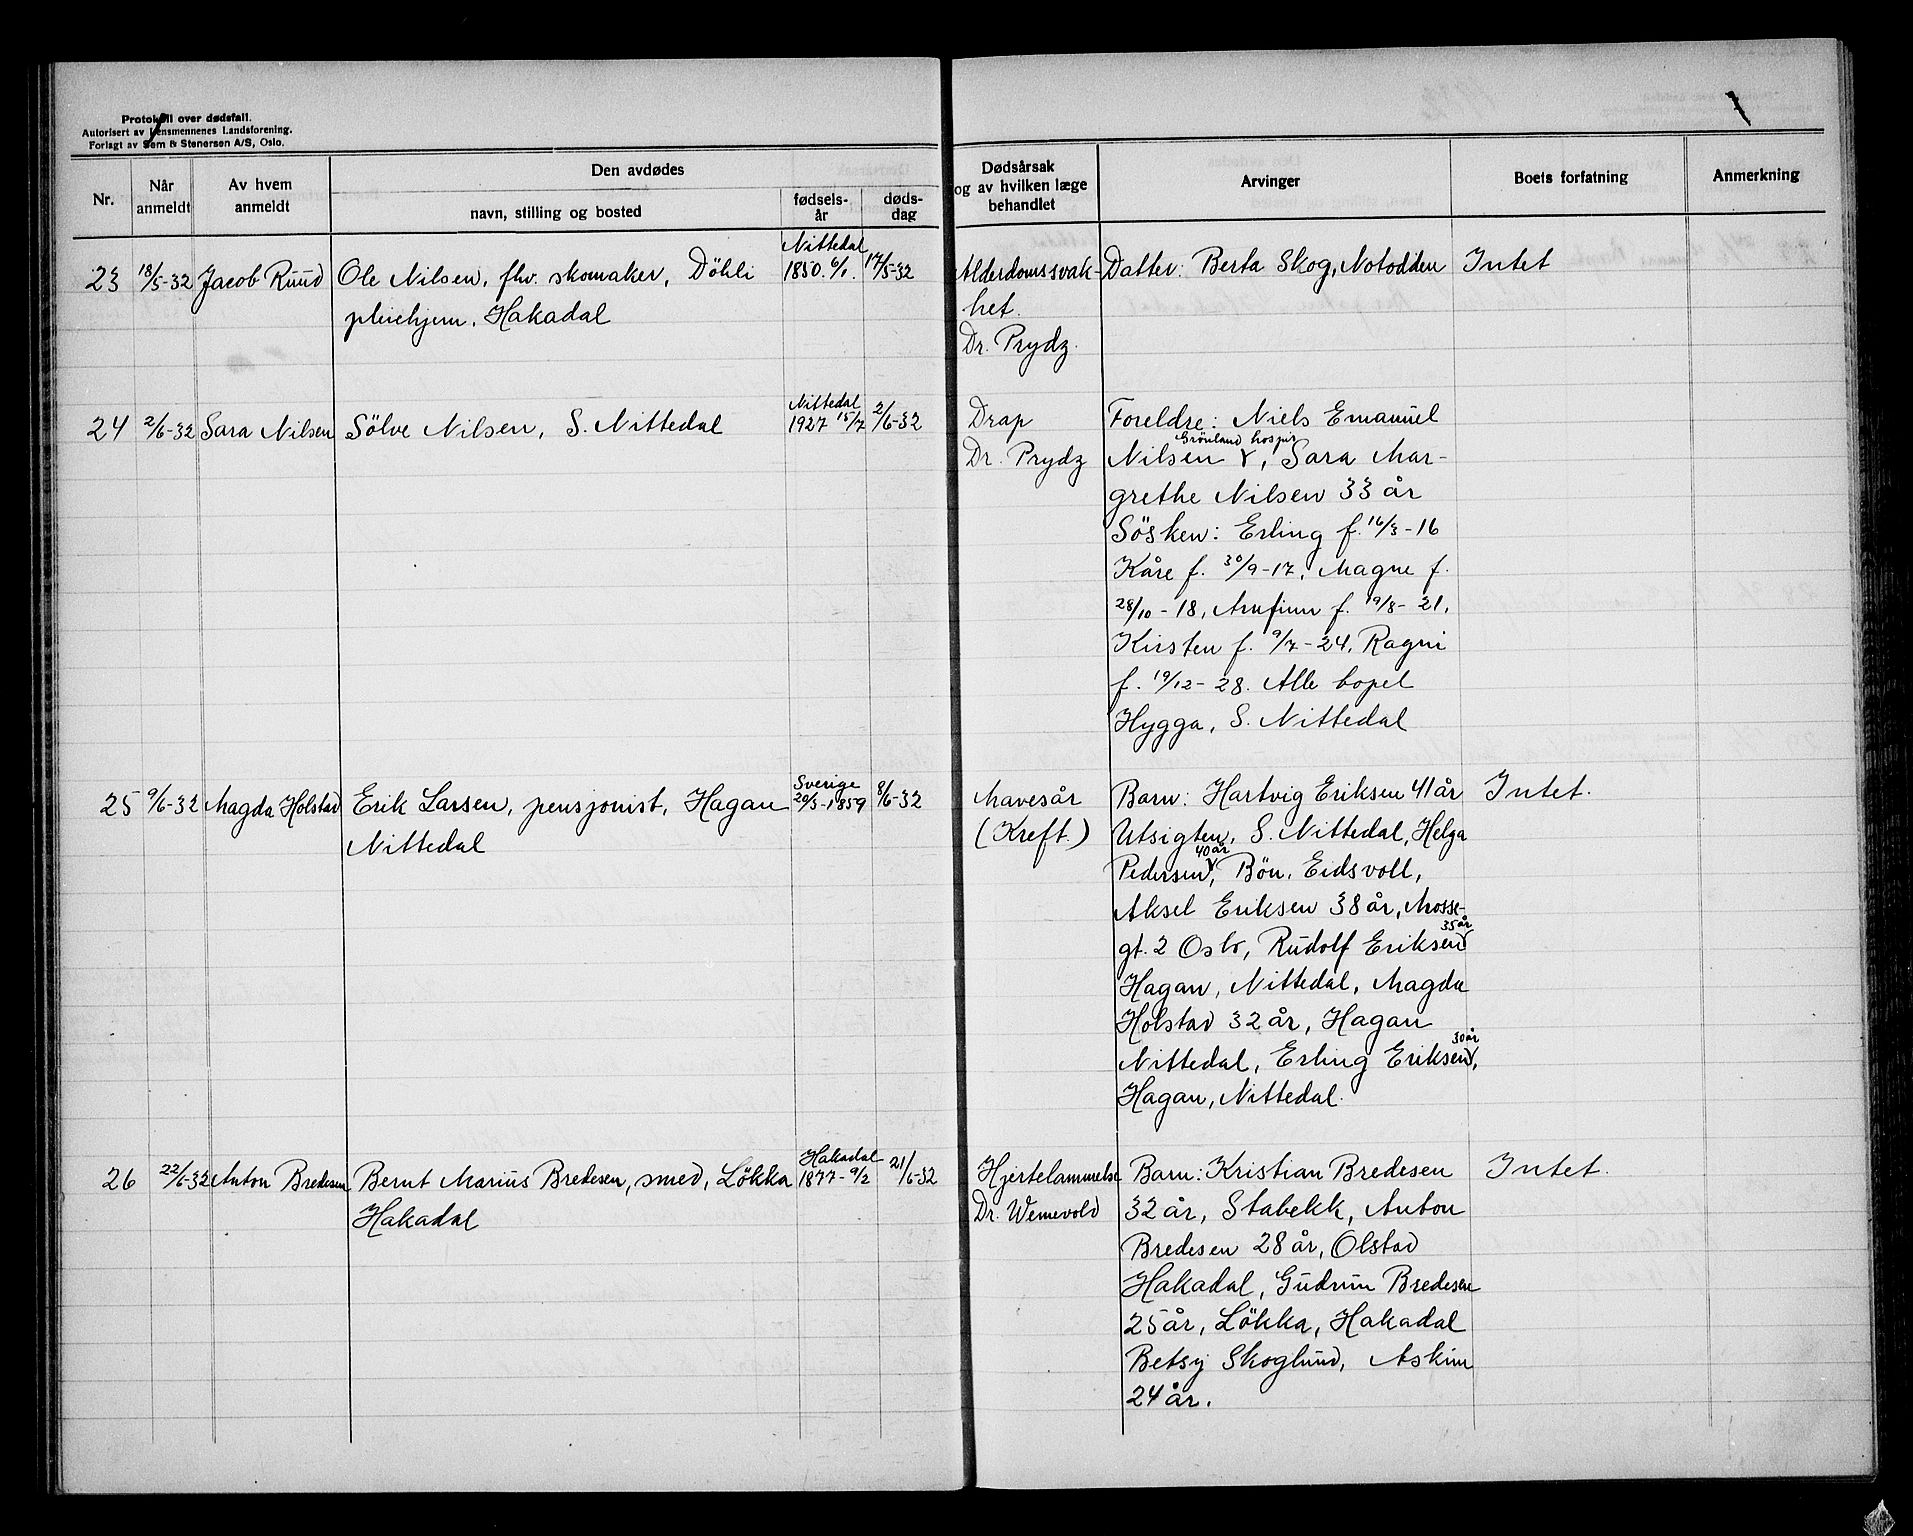 Protokoll over dødsfall.
Autorisert av Lensmennenes Landsforening.
Forlagt av Sem & Stenersen A/S, Oslo.
Nr.
Når anmeldt
Av hvem anmeldt
Den avdødes
navn, stilling og bosted
fødsels-
år
døds-
dag
Dødsårsak
og av hvilken læge
behandlet
Arvinger
Boets forfatning
Anmerkning
23 18/5-32 Jacob Ruud
Ole Nilsen, fhv. skomaker, Döhli
pleiehjem, Hakadal
Nittedal
1850. 6/1.
17/5-32
Alderdomssvak-
het.
Dr. Prydz.
Datter: Berta Skog, Notodden
Intet
24 2/6-32 Sara Nilsen
Sölve Nilsen, S. Nittedal
Nittedal
1927 15/7
2/6-32
Drap
Dr. Prydz
Foreldre: Niels Emanuel
Grönland hospir
Nilsen, Sara Mar-
grethe Nilsen 33 år
Sösken: Erling f. 16/3-16
Kåre f. 30/9-17, Magne f.
28/10-18, Arnfinn f. 19/8-21,
Kirsten f. 9/7-24, Ragni
f. 19/12-28. Alle bopel
Hygga, S. Nittedal
25 9/6-32 Magda Holstad
Erik Larsen, pensjonist, Hagan
Nittedal
Sverige
20/5-1859
8/6-32
Mavesår
(Kreft.)
Barn: Hartvig Eriksen 41 år
Utsigten, S. Nittedal, Helga
40 år
Pedersen, Bön, Eidsvoll,
Aksel Eriksen 38 år, Mosse-
35 år
gt. 2 Oslo, Rudolf Eriksen
Hagan, Nittedal, Magda
Holstad 32 år, Hagan
30 år
Nittedal, Erling Eriksen,
Hagan, Nittedal.
Intet.
26 22/6-32 Anton Bredesen
Bernt Marius Bredesen, smed, Lökka
Hakadal
Hakadal
1877-9/2
21/6-32
Hjertelammelse
Dr. Wemevold
Barn: Kristian Bredesen
32 år, Stabekk, Anton
Bredesen 28 år, Olstad
Hakadal, Gudrun Bredesen
25 år, Lökka, Hakadal
Betsy Skoglund, Askim
24 år.
Intet.